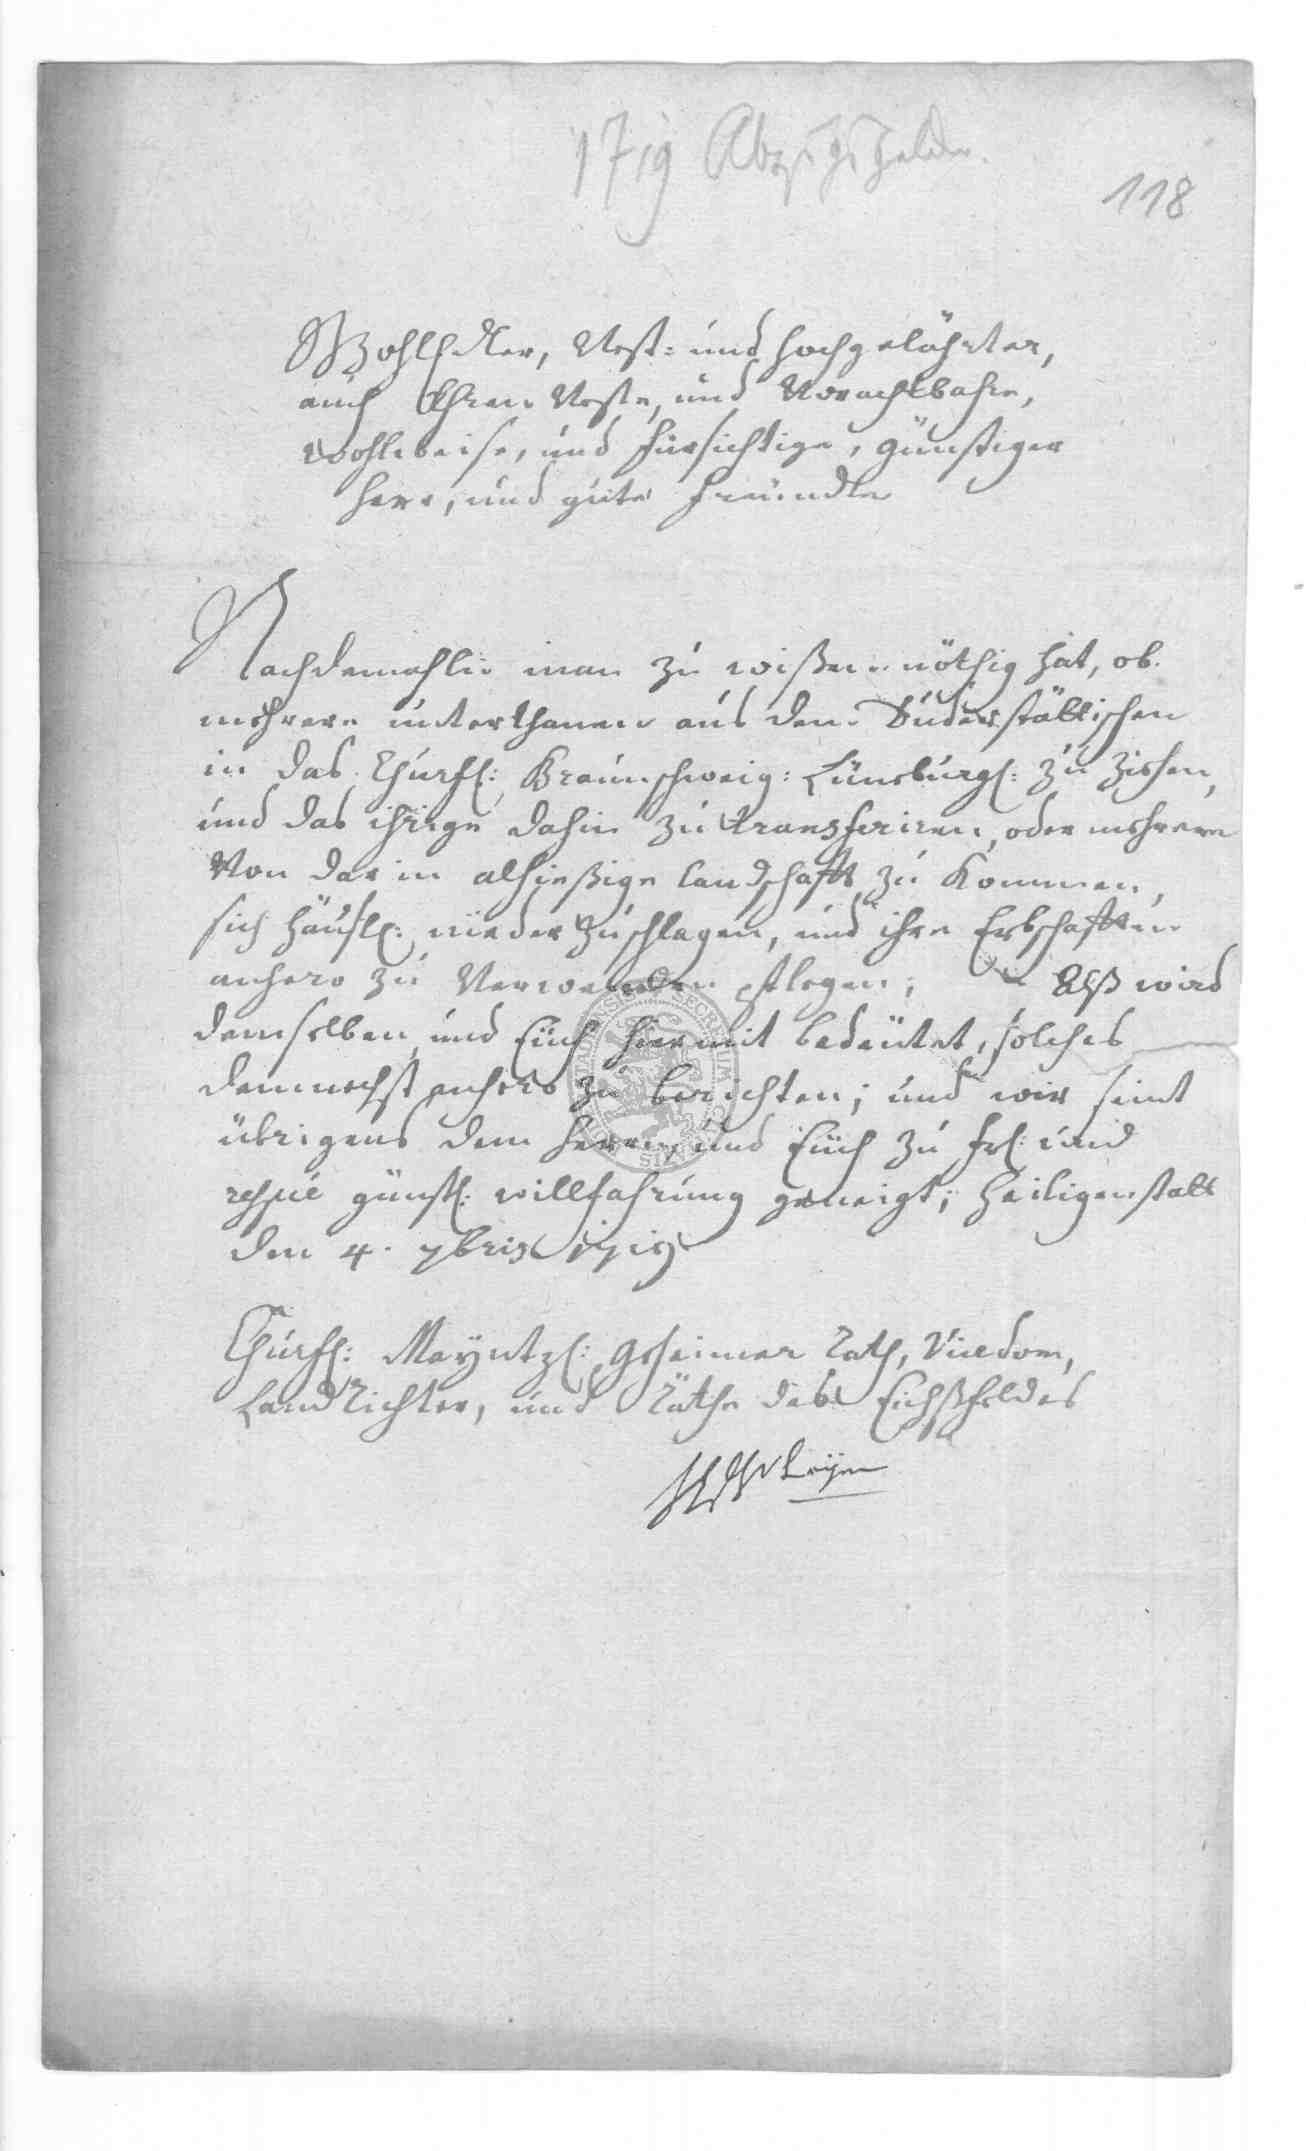 1719 Abzugs Gelder.
118
WohlEdler, Vest- und Hochgelährter,
auch Ehren Veste, und Vorachtbahre,
Wohlweise, und Fürsichtige, günstiger
Herr, und gute Freündte
Nachdemahlen man zu wißen nöthig hat, ob
mehrere unterthanen aus dem Duderstättischen
in das Churfl: Braunschweig: Lüneburgl: zu ziehen,
und das ihrige dahin zu transferiren, oder mehrere
Von dar in alhießige landschafft zu Kommen,
sich häußl: nieder zuschlagen, und ihre Erbschafften
anhero zu Verwenden pflegen; Alß wird
demselben, und Euch hiermit bedeutet, solches
demnechst anhero zu berichten; und wir seint
übrigens dem Herrn, und Euch zu frl: und
respé günstl: willfahrung geneigt; Heiligenstatt
den 4. 7bris 1719
Churfl: Mayntzl: Geheimer Rath, Vicedom,
LandRichter, und Räthe des Eichßfeldes
SECRETUM